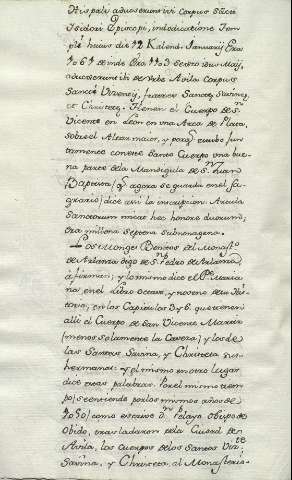 Hispale aduxerunt ivi corpus Sácti
Isidori Episcopi, in dedicatione Tem
pli huius die 12 Kalend. Januarij Era
1061 deinde Era 1103 sexto idus Maij,
aduxerunt ivi de Urbe Avila Corpus
Sancti Vincentij, fratres Sanctæ Savinæ,
et Christetę. Tienen el Cuerpo de Sn.
Vicente en Leon en una Arca de Plata,
sobre el Altar maior, y porq. estubo Jun
tamente con este Santo Cuerpo una bue
na parte de la Mandigula de Sn. Juan
Baptista, q. agora se guarda en el Sa
grario; dice assi la inscripcion. Arcula
Sanctorum micat hæc honore duorum;
Era millena septena
Los Monges Benitos del Monasto.
de Arlanza digo de Sn. Pedro de Arlanza
afirman; y lo mismo dice el Pe. Maria
na, en el Libro octavo, y noveno de su His
toria, en los Capitulos 3 y 6 que tienen
alli el Cuerpo de San Vicente Martir
(menos solamente la Cavera) y los de
las Santas Savina, y Christeta sus
hermanas: y el mismo en otro lugar
dice estas palabras. Por el mismo tiem
po (se entiende por los mismos años de
1050) como escrive Dn. Pelayo Obispo de
Obiedo, trasladaron de la Ciudad de
Avila, los cuerpos de los Santos Vinte.
Savina, y Christeta, al Monasterio